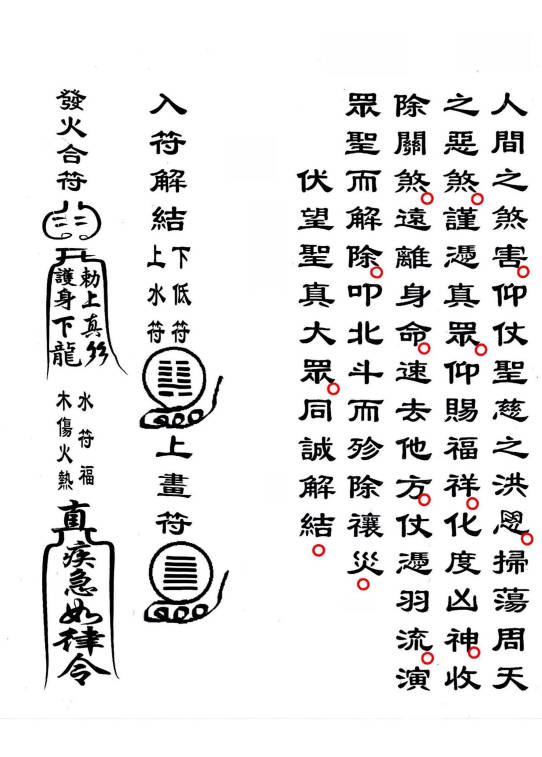 人間之煞害仰仗聖慈之洪恩掃蕩周天
之惡煞謹憑真眾仰賜福祥化度凶神收
除關煞遠離身命速去他方仗憑羽流演
眾聖而解除叩北斗而殄除禳災
伏望聖真大眾同誠解結
入符解結
下低符
上水符
上畫符
發火合符
勅上真
護身下龍
水符福
木傷火熱
疾急如律令